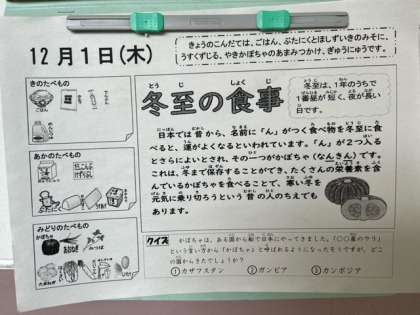 12月1日(木)
きょうのこんだては、ごはん、ぶたにくとほしずいきのみそに、
うすくずじる、やきかぼちゃのあまみつかけ、ぎゅうにゅうです。
きのたべもの
ごはん
あかのたべもの
みどりのたべもの
かぼちゃ
みつば
とうじ しょくじ
冬至の食事
冬至は、1年のうちで
1番昼が短く、夜が長い
日です。
日本では昔から、名前に「ん」がつく食べ物を冬至に食
べると、運がよくなるといわれています。「ん」が2つ入る
とさらによいとされ、その一つがかぼちゃ(なんきん)です。
これは、冬まで保存することができ、たくさんの栄養素を含
んでいるかぼちゃを食べることで、寒い冬を
元気に乗り切ろうという昔の人のちえでも
あります。
クイズ かぼちゃは、ある国から船で日本にやってきました。「〇〇産のウリ」
という言い方から「かぼちゃ」と呼ばれるようになったそうですが、どこ
の国からきたでしょうか?
①カザフスタン ②ガンビア ③カンボジア